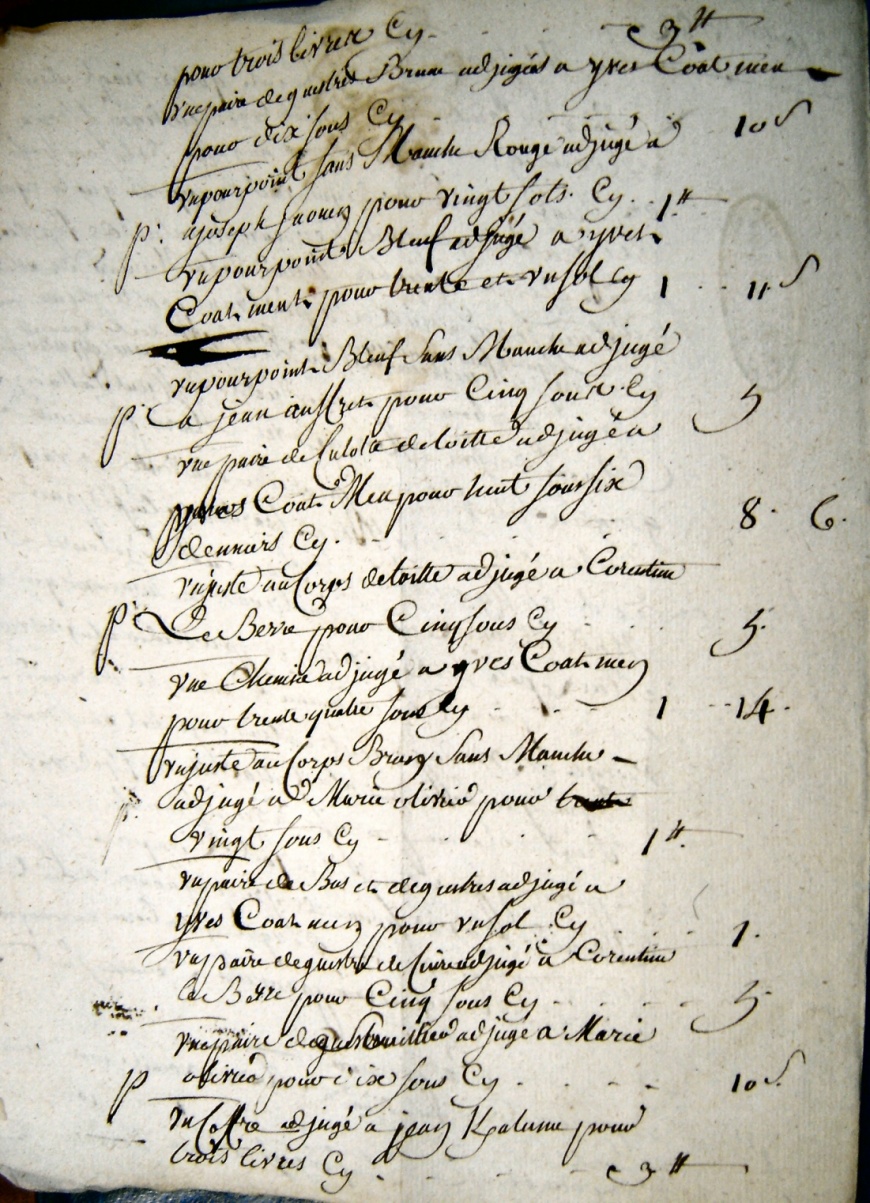 pour trois livres Cy - 3 ₶
une paire de guestres Brune adjugés a yves Coat men
pour dix sous Cy 10 s
un pourpoint sans Manche Rouge adjugé a
p. ajoseph pour vingt sols Cy 1 ₶
un pourpoint Bleuf adjugé a yves
Coat ment pour trente et un sol Cy 1 11 s
un pourpoint Bleuf sans Manche adjugé
p. a jean auffret pour Cinq sous Cy 5
une paire de Culotte de toille adjugé a
yves Coat Men pour huit sous six
denniers Cy 8 6
un juste au Corps de toille adjugé a Corentin
p. Le Berre pour Cinq sous Cy 5
une Chemise adjugé a yves Coat men
pour trente quatre sous Cy 1 14
un juste au Corps Brun sans Manche
p. adjugé a Marie olivié pour
vingt sous Cy 1 ₶
un paire de Bas et de guestres adjugé a
yves Coat men pour un sol Cy 1
un paire de guestre de adjugé a Corentin
le Berre pour Cinq sous Cy 5
une paire de adjugé a Marie
p olivié pour dix sous Cy 10 s
un Coffre adjugé a jean Kalume pour
trois livres Cy 3 ₶